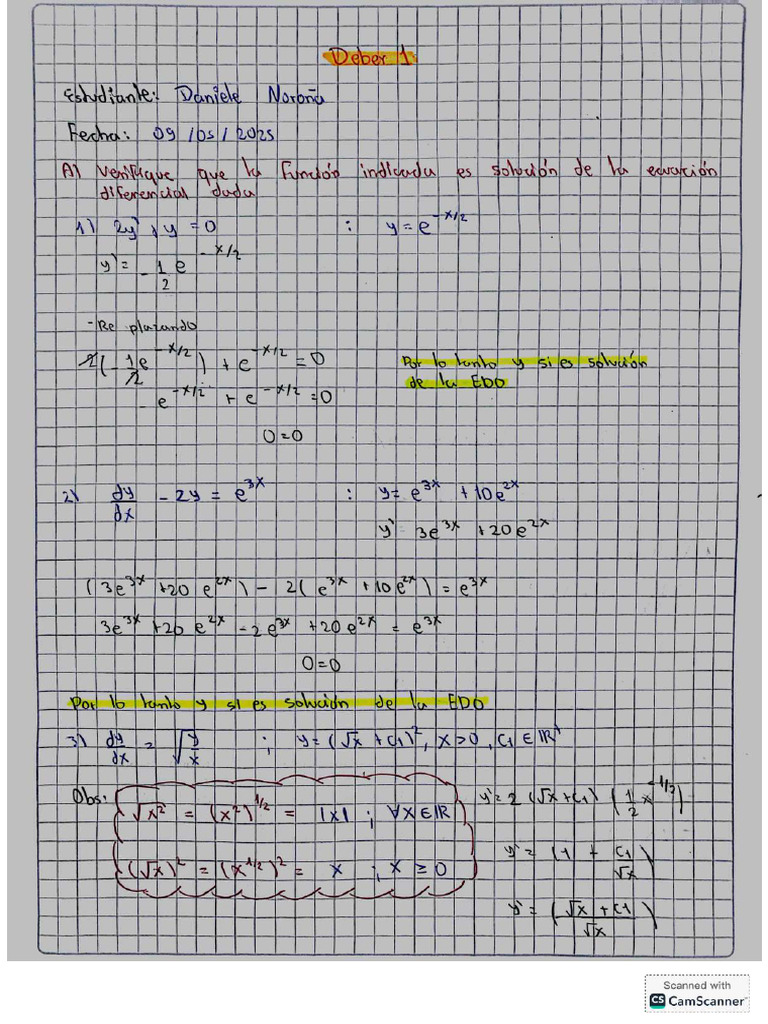 Deber 1
Estudiante: Daniele Noroña
Fecha: 09 /05 / 2025
A) Verifique que la función indicada es solución de la ecuación
diferencial dada
1) 2y' + y = 0 ; y = e^{-x/2}
y' = -1/2 e^{-x/2}
- Re plazando
2(-1/2 e^{-x/2}) + e^{-x/2} = 0
Por lo tanto y si es solución
de la EDO
- e^{-x/2} + e^{-x/2} = 0
0=0
2) dy/dx - 2y = e^{3x} : y = e^{3x} + 10e^{2x}
y' 3e^{3x} + 20e^{2x}
(3e^{3x} + 20 e^{2x}) - 2(e^{3x} + 10e^{2x}) = e^{3x}
3e^{3x} + 20 e^{2x} - 2e^{3x} + 20e^{2x} = e^{3x}
0=0
Por lo tanto y si es solución de la EDO
3) dy/dx = √(y/x) ; y = (√x + C1)^2, x>0, C1 ∈ IR
Obs:
√x^2 = (x^2)^{1/2} = |x| ; ∀x∈IR
(√x)^2 = (x^{1/2})^2 = x ; x ≥ 0
y' = 2 (√x + C1) (1/2 x^{-1/2})
y' = (1 + C1/√x)
y' = ((√x + C1)/√x)
Scanned with
CS CamScanner